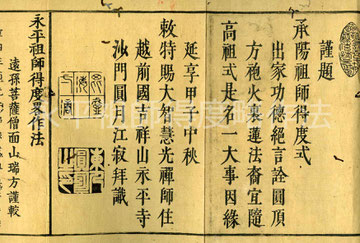 謹題
承陽祖師得度式
出家功德絕言詮圓頂
方袍火裏蓮法裔宜隨
高祖式是名一大事因緣
延享甲子中秋
敕特賜大智慧光禪師住
越前國吉祥山永平寺
沙門圓月江寂拜識
永平祖師得度畧作法
遠孫菩薩僧面山瑞方謹較
永平祖師得度略作法